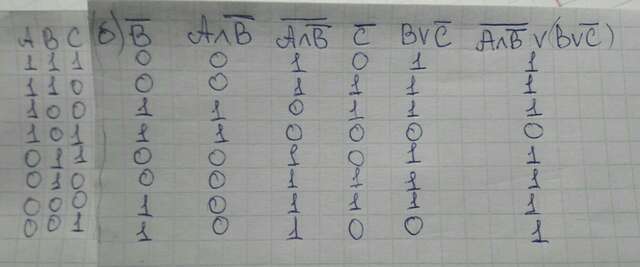 A B C б) B̅ A∧B̅ A∧B̅̅ C̅ B∨C̅ A∧B̅̅ ∨(B∨C̅)
1 1 1 0 0 1 0 1 1
1 1 0 0 0 1 1 1 1
1 0 0 1 1 0 1 1 1
1 0 1 1 1 0 0 0 0
0 1 1 0 0 1 0 1 1
0 1 0 0 0 1 1 1 1
0 0 0 1 0 1 1 1 1
0 0 1 1 0 1 0 0 1